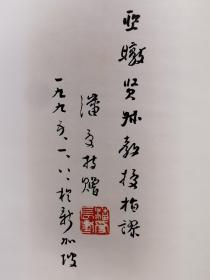 亚暾贤教授指谬
潘受持赠
一九九五、一、八、於新加坡